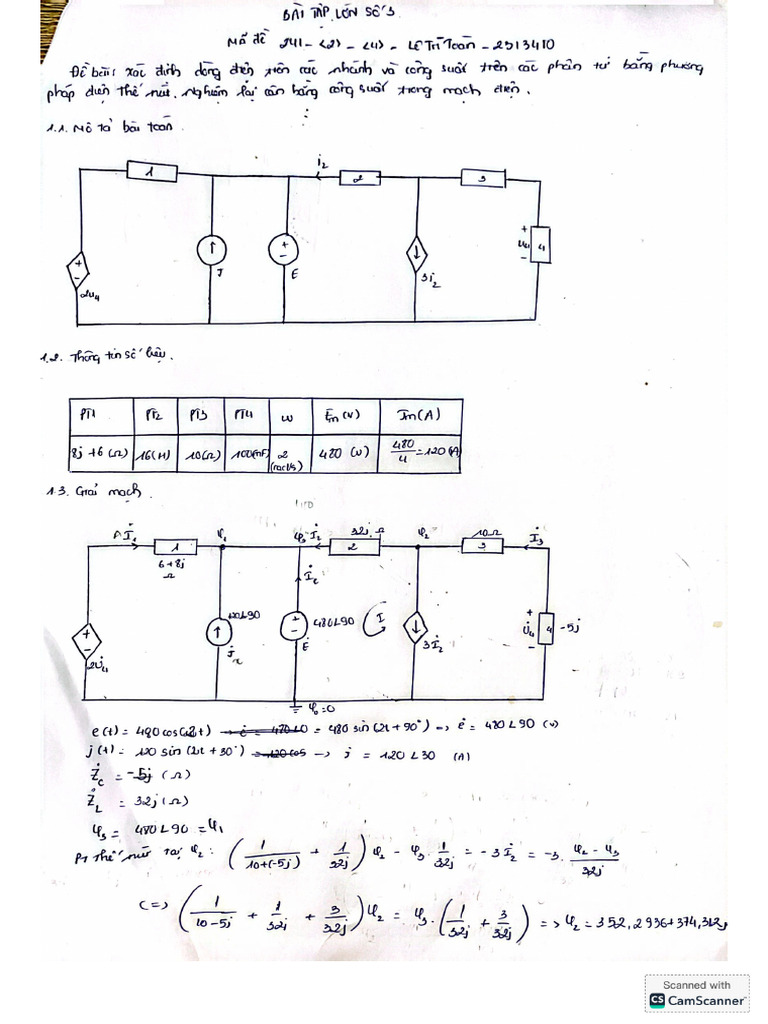 BÀI TẬP LỚN SỐ 3
Mã đề 241 - <2> - <4> - Lê Trí Toàn - 2313410
Đề bài: xác định dòng điện trên các nhánh và công suất trên các phần tử bằng phương
pháp điện thế nút. Nghiệm lại cân bằng công suất trong mạch điện.
1.1. Mô tả bài toán.
1
i2
2
3
+
-
2u4
↑
J
+
-
E
↓
3i2
+
u4
-
4
1.2. Thông tin số liệu.
PT1 PT2 PT3 PT4 ω Em (V) Jm (A)
8j + 6 (Ω) 16 (H) 10 (Ω) 100 (mF) 2 (rad/s) 480 (V) 480/4 = 120 (A)
1.3. Giải mạch.
A İ1 φ1 φ3 İ2 32j Ω φ2 10Ω İ3
1 2 3
6+8j
Ω
İε
480∠90
I
+
-
2U̇4
↑
+
-
Ė
↓
3İ2
+
U̇4
-
4 -5j
φ0 = 0
e(t) = 480 cos(2t) = 480 sin(2t + 90°) → ė = 480∠90 (V)
j(t) = 120 sin(2t + 30°) → j = 120∠30 (A)
ŻC = -5j (Ω)
ŻL = 32j (Ω)
φ3 = 480∠90 = φ1
PT thế nút tại φ2: (1/(10+(-5j)) + 1/32j) φ2 - φ3 . 1/32j = -3İ2 = -3. (φ2 - φ3)/32j
<=> (1/(10-5j) + 1/32j + 3/32j) φ2 = φ3 . (1/32j + 3/32j) => φ2 = 352,2936+374,312j
Scanned with
CS CamScanner